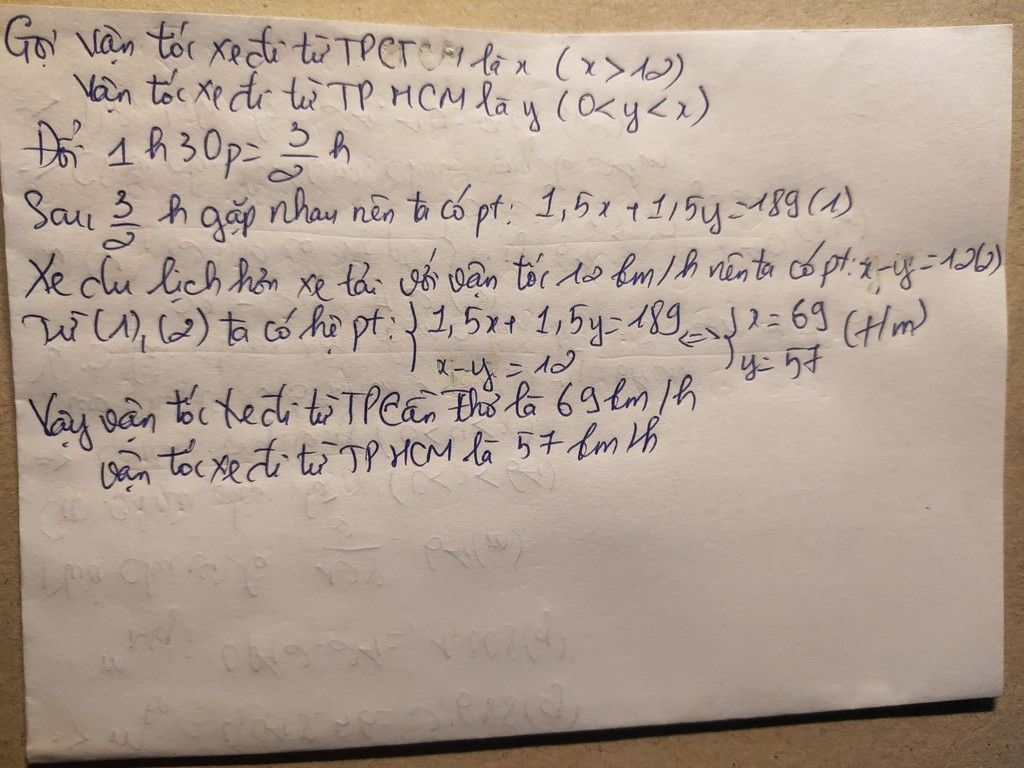 Gọi vận tốc xe đi từ TPCT là x (x>12)
Vận tốc xe đi từ TP.HCM là y (0<y<x)
Đổi 1h30p = 3/2 h
Sau 3/2 h gặp nhau nên ta có pt: 1,5x+1,5y=189(1)
Xe du lịch hơn xe tải với vận tốc 12km/h nên ta có pt: x-y=12(2)
Từ (1),(2) ta có hệ pt: { 1,5x+1,5y=189 <=> { x=69 (t/m)
x-y=12 y=57
Vậy vận tốc xe đi từ TP Cần Thơ là 69km/h
vận tốc xe đi từ TP HCM là 57km/h